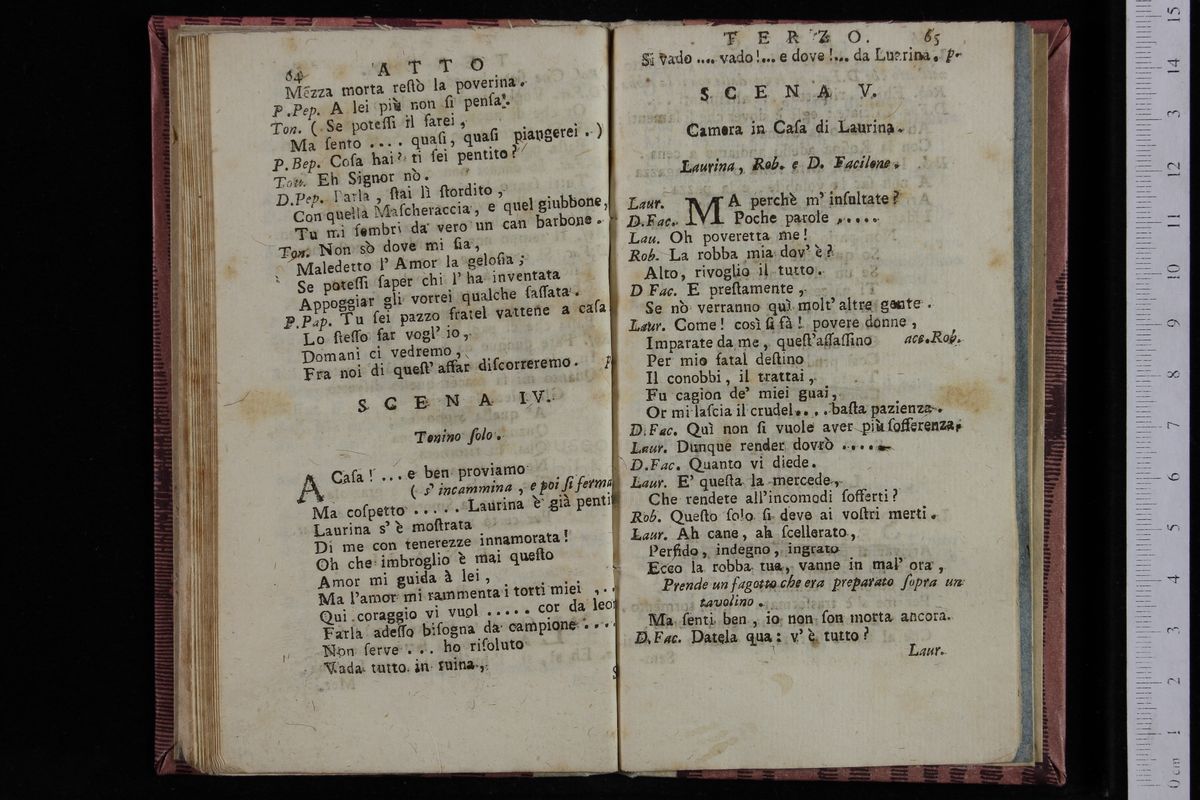 64 ATTO
Mezza morta reſtò la poverina.
P.Pep. A lei più non ſi penſa.
Ton. ( Se poteſſi il farei ,
Ma ſento .... quaſi, quaſi piangerei . )
P. Bep. Coſa hai? ti ſei pentito?
Ton. Eh Signor nò.
D.Pep. Parla , ſtai lì ſtordito ,
Con quella Maſcheraccia, e quel giubbone,
Tu mi ſembri da vero un can barbone.
Ton. Non sò dove mi ſia,
Maledetto l' Amor la geloſia ;
Se poteſſi ſaper chi l' ha inventata
Appoggiar gli vorrei qualche ſaſſata.
P.Pap. Tu ſei pazzo fratel vattene a caſa
Lo ſteſſo far vogl' io,
Domani ci vedremo,
Fra noi di queſt' affar diſcorreremo. p
SCENA IV.
Tonino ſolo.
A Caſa ! ... e ben proviamo
( s' incammina , e poi ſi ferma
Ma coſpetto ..... Laurina è già penti
Laurina s' è moſtrata
Di me con tenerezze innamorata!
Oh che imbroglio è mai queſto
Amor mi guida à lei,
Ma l'amor mi rammenta i torti miei ,..
Qui coraggio vi vuol ..... cor da leo
Farla adeſſo biſogna da campione ....
Non ſerve ... ho riſoluto
Vada tutto in ruina,
TERZO. 65
Si vado .... vado !... e dove !... da Luarina. p.
SCENA V.
Camera in Caſa di Laurina.
Laurina, Rob. e D. Facilone.
Laur. MA perchè m' inſultate?
D.Fac. Poche parole .....
Lau. Oh poveretta me!
Rob. La robba mia dov' è?
Alto, rivoglio il tutto.
D Fac. E preſtamente,
Se nò verranno quì molt' altre gente.
Laur. Come! così ſi fà! povere donne,
Imparate da me, queſt'aſſaſſino acc.Rob.
Per mio fatal deſtino
Il conobbi, il trattai,
Fu cagion de' miei guai,
Or mi laſcia il crudel.... baſta pazienza.
D.Fac. Quì non ſi vuole aver più ſofferenza,
Laur. Dunque render dovrò .....
D.Fac. Quanto vi diede.
Laur. E' queſta la mercede,
Che rendete all'incomodi ſofferti?
Rob. Queſto ſolo ſi deve ai voſtri merti.
Laur. Ah cane, ah ſcellerato,
Perfido, indegno, ingrato
Ecco la robba tua, vanne in mal' ora,
Prende un fagotto che era preparato ſopra un
tavolino.
Ma ſenti ben, io non ſon morta ancora.
D.Fac. Datela qua: v' è tutto?
Laur.